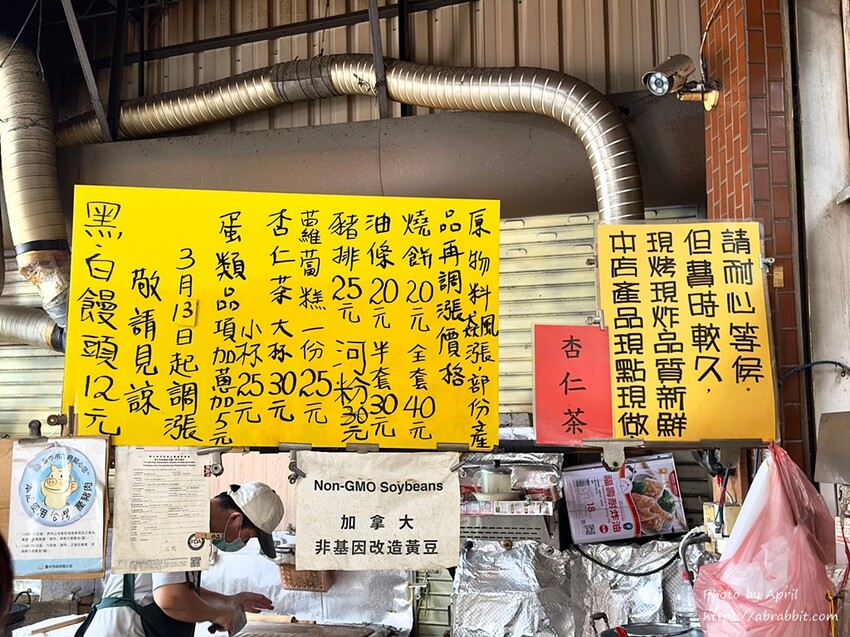 原物料飆漲.部份產
品再調漲價格
燒餅20元 全套40元
油條20元 半套30元
豬排25元 河粉30元
蘿蔔糕一份25元
杏仁茶大杯30元
小杯25元
蛋類品項加蔥加5元
3月13日起調漲
敬請見諒
黑.白饅頭12元
請耐心等候.
但費時較久,
現烤現炸品質新鮮
本店產品現點現做
杏仁茶
Non-GMO Soybeans
加拿大
非基因改造黃豆
台灣
豬肉
18
Photo by April
https://abrabbit.com